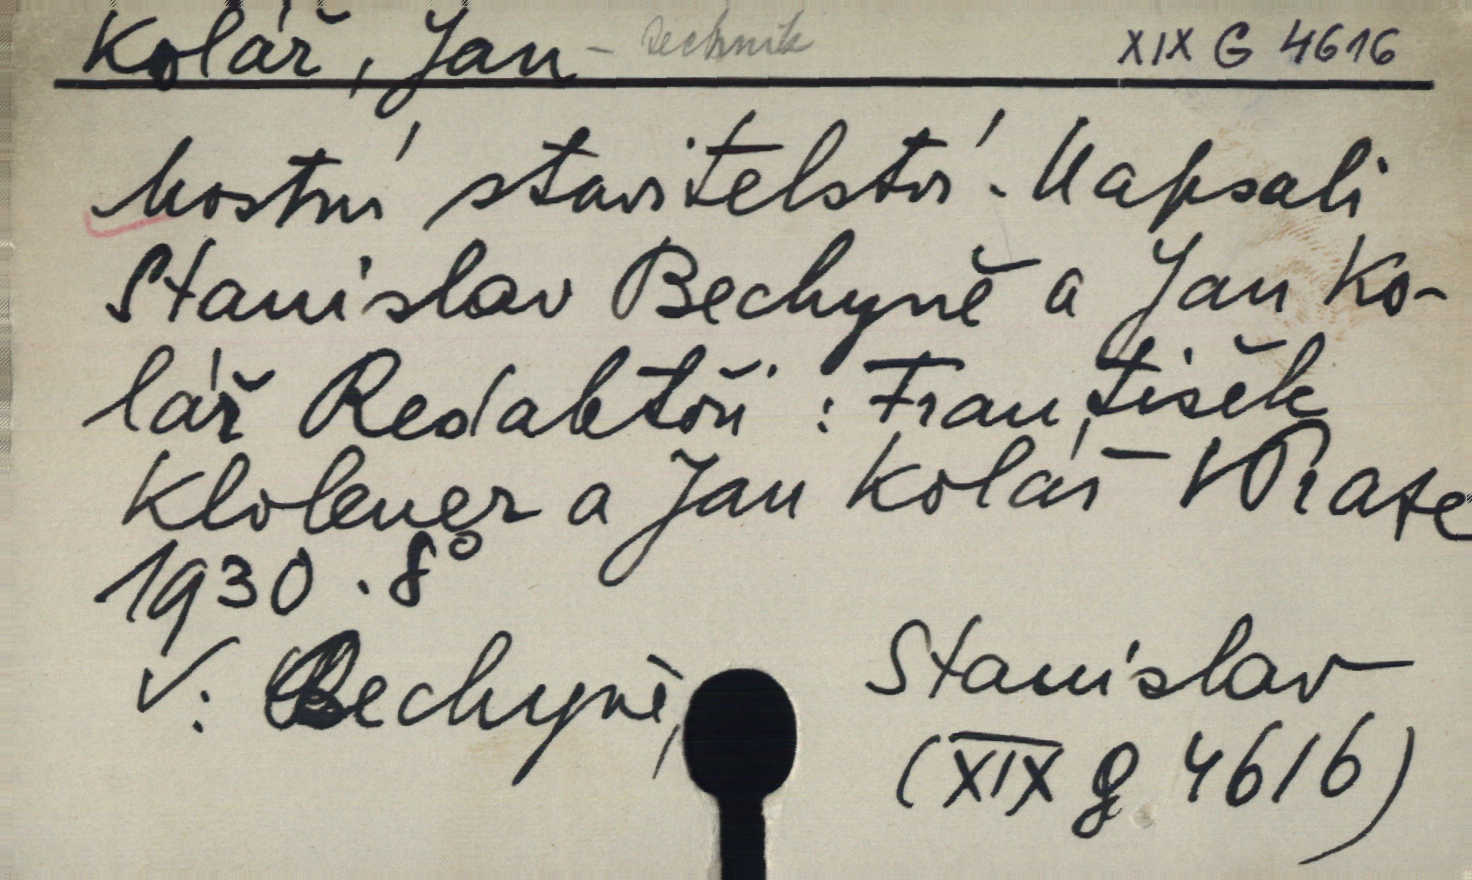 Kolář, Jan - technik XIX G 4616
Mostní stavitelství. Napsali
Stanislav Bechyně a Jan Ko-
lář Redaktoři : František
Klokner a Jan Kolář V Praze
1930 . 8°
V: Bechyně, Stanislav
(XIX G 4616)